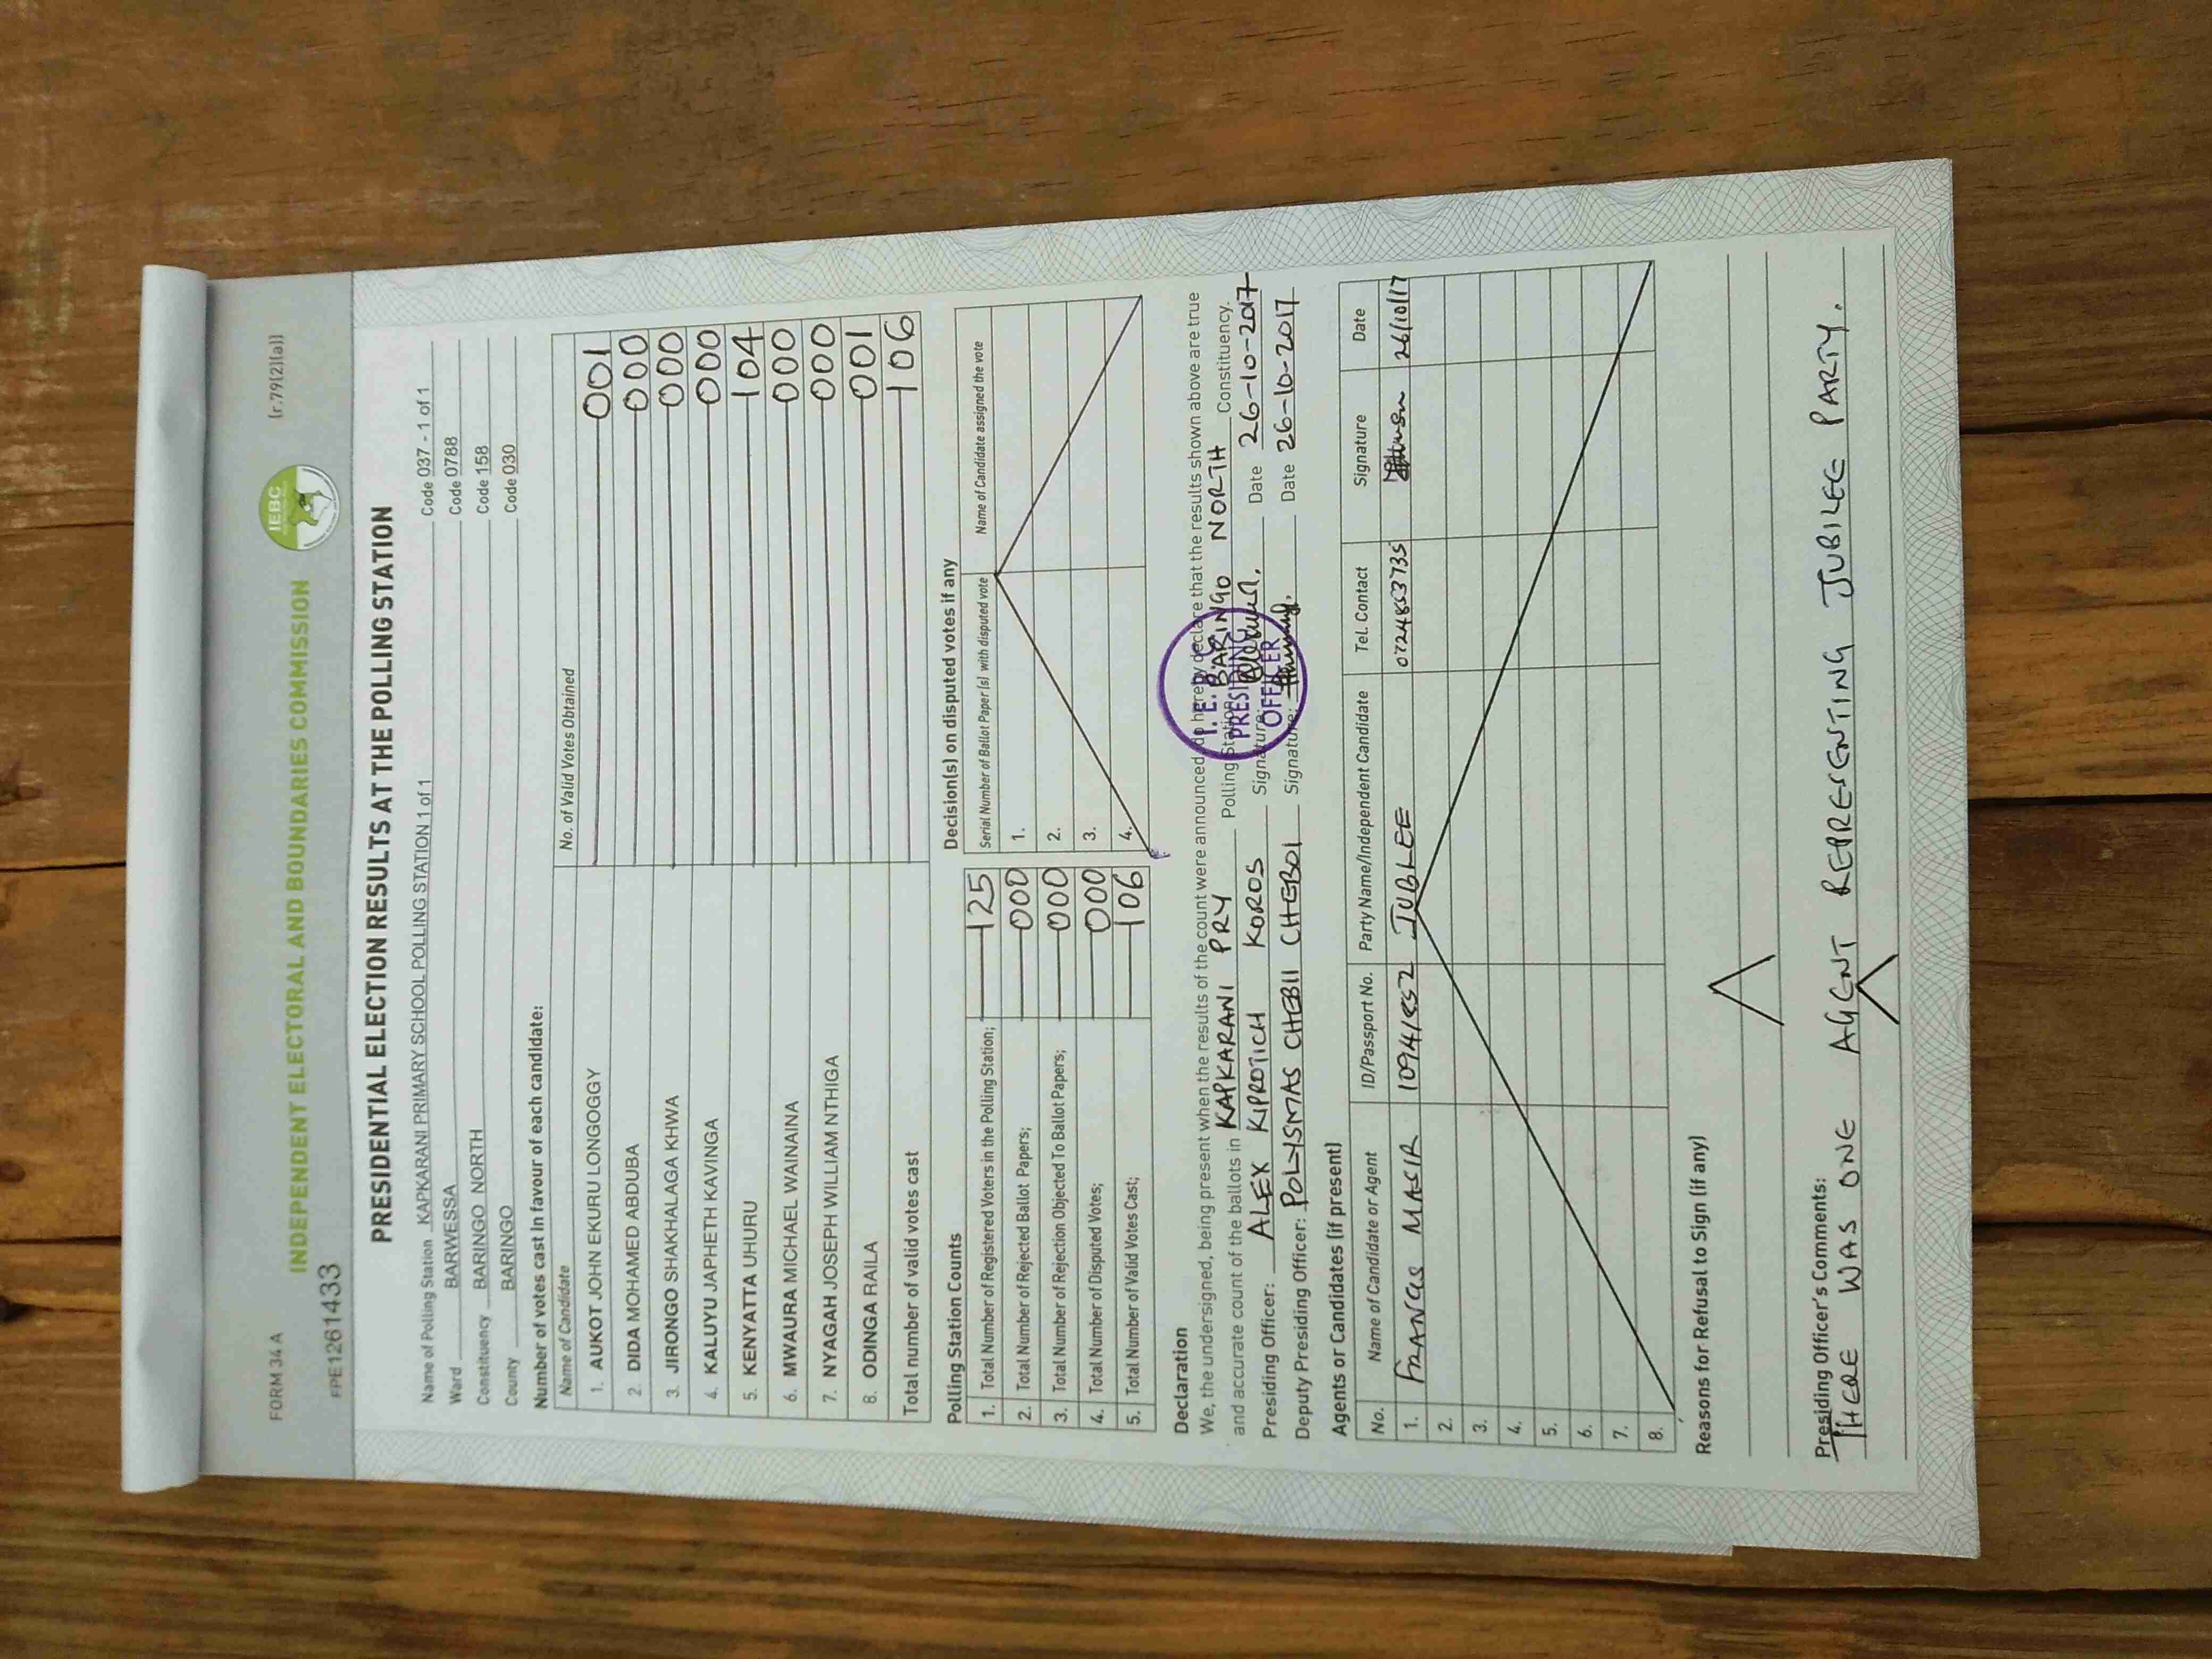 FORM 34 A
(r.79(2)(a))
INDEPENDENT ELECTORAL AND BOUNDARIES COMMISSION
IEBC
FPE1261433
PRESIDENTIAL ELECTION RESULTS AT THE POLLING STATION
Name of Polling Station KAPKARANI PRIMARY SCHOOL POLLING STATION 1 of 1 Code 037 - 1 of 1
Ward BARWESSA Code 0788
Constituency BARINGO NORTH Code 158
County BARINGO Code 030
Number of votes cast In favour of each candidate:
Name of Candidate No. of Valid Votes Obtained
1. AUKOT JOHN EKURU LONGOGGY 001
2. DIDA MOHAMED ABDUBA 000
3. JIRONGO SHAKHALAGA KHWA 000
4. KALUYU JAPHETH KAVINGA 000
5. KENYATTA UHURU 104
6. MWAURA MICHAEL WAINAINA 000
7. NYAGAH JOSEPH WILLIAM NTHIGA 000
8. ODINGA RAILA 001
Total number of valid votes cast 106
Polling Station Counts
1. Total Number of Registered Voters in the Polling Station; 125
2. Total Number of Rejected Ballot Papers; 000
3. Total Number of Rejection Objected To Ballot Papers; 000
4. Total Number of Disputed Votes; 000
5. Total Number of Valid Votes Cast; 106
Decision(s) on disputed votes if any
Serial Number of Ballot Paper (s) with disputed vote Name of Candidate assigned the vote
1.
2.
3.
4.
Declaration
We, the undersigned, being present when the results of the count were announced, do hereby declare that the results shown above are true
and accurate count of the ballots in KAPKARANI PRY Polling Station BARINGO NORTH Constituency.
Presiding Officer: ALEX KIPROTICH KOROS Signature: Date 26-10-2017
Deputy Presiding Officer: POLYSMAS CHEBII CHEBOI Signature: Date 26-10-2017
I. E. B. C
PRESIDING
OFFICER
Agents or Candidates (if present)
No. Name of Candidate or Agent ID/Passport No. Party Name/Independent Candidate Tel. Contact Signature Date
1. FRANCIS JUBLEE 26/10/17
2.
3.
4.
5.
6.
7.
8.
Reasons for Refusal to Sign (if any)
Presiding Officer's Comments:
THERE WAS ONE AGENT REPRESENTING JUBILEE PARTY.